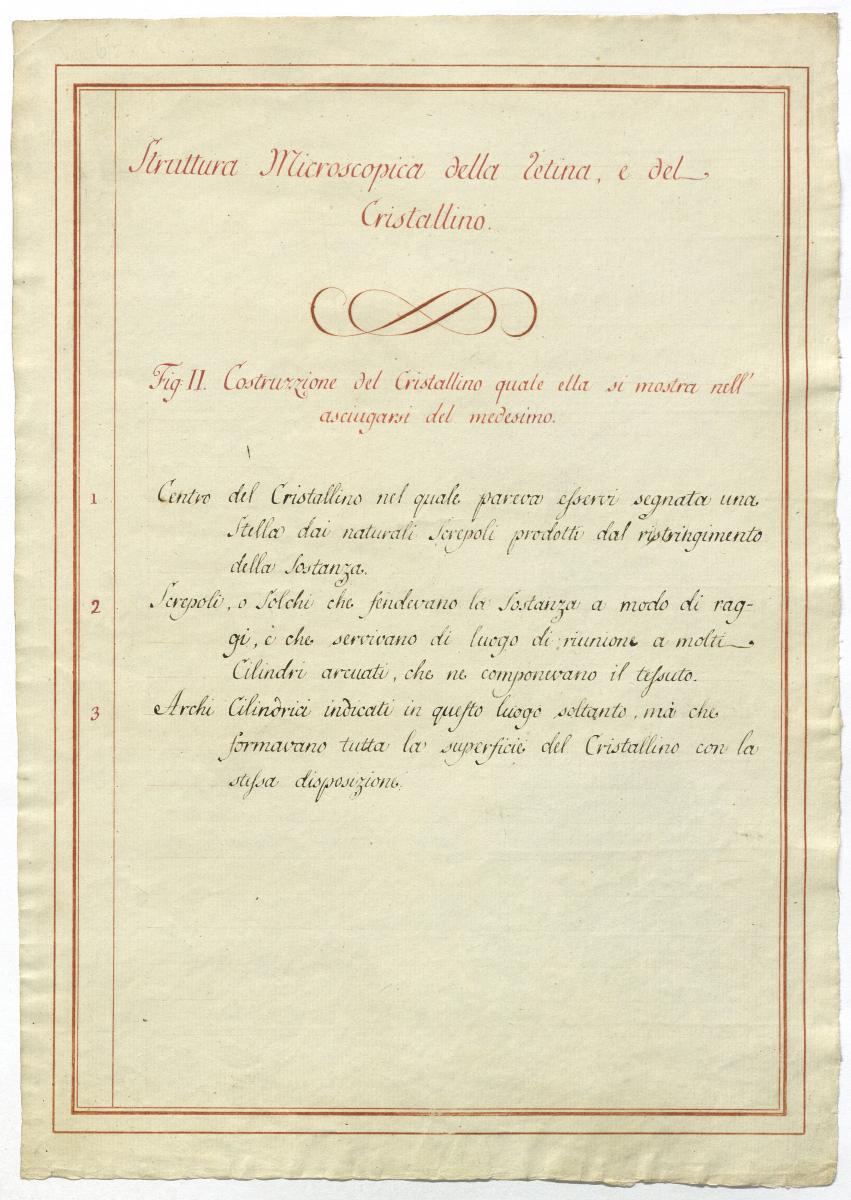 Struttura Microscopica della Retina, e del
Cristallino.
Fig. II. Costruzzione del Cristallino quale ella si mostra nell'
asciugarsi del medesimo.
1 Centro del Cristallino nel quale pareva esservi segnata una
Stella dai naturali Screpoli prodotti dal ristringimento
della Sostanza.
2 Screpoli, o Solchi che fendevano la Sostanza a modo di rag-
gi, è che servivano di luogo di riunione a molti
Cilindri arcuati, che ne componevano il tessuto.
3 Archi Cilindrici indicati in questo luogo soltanto, mà che
formavano tutta la superficie del Cristallino con la
stessa disposizione.